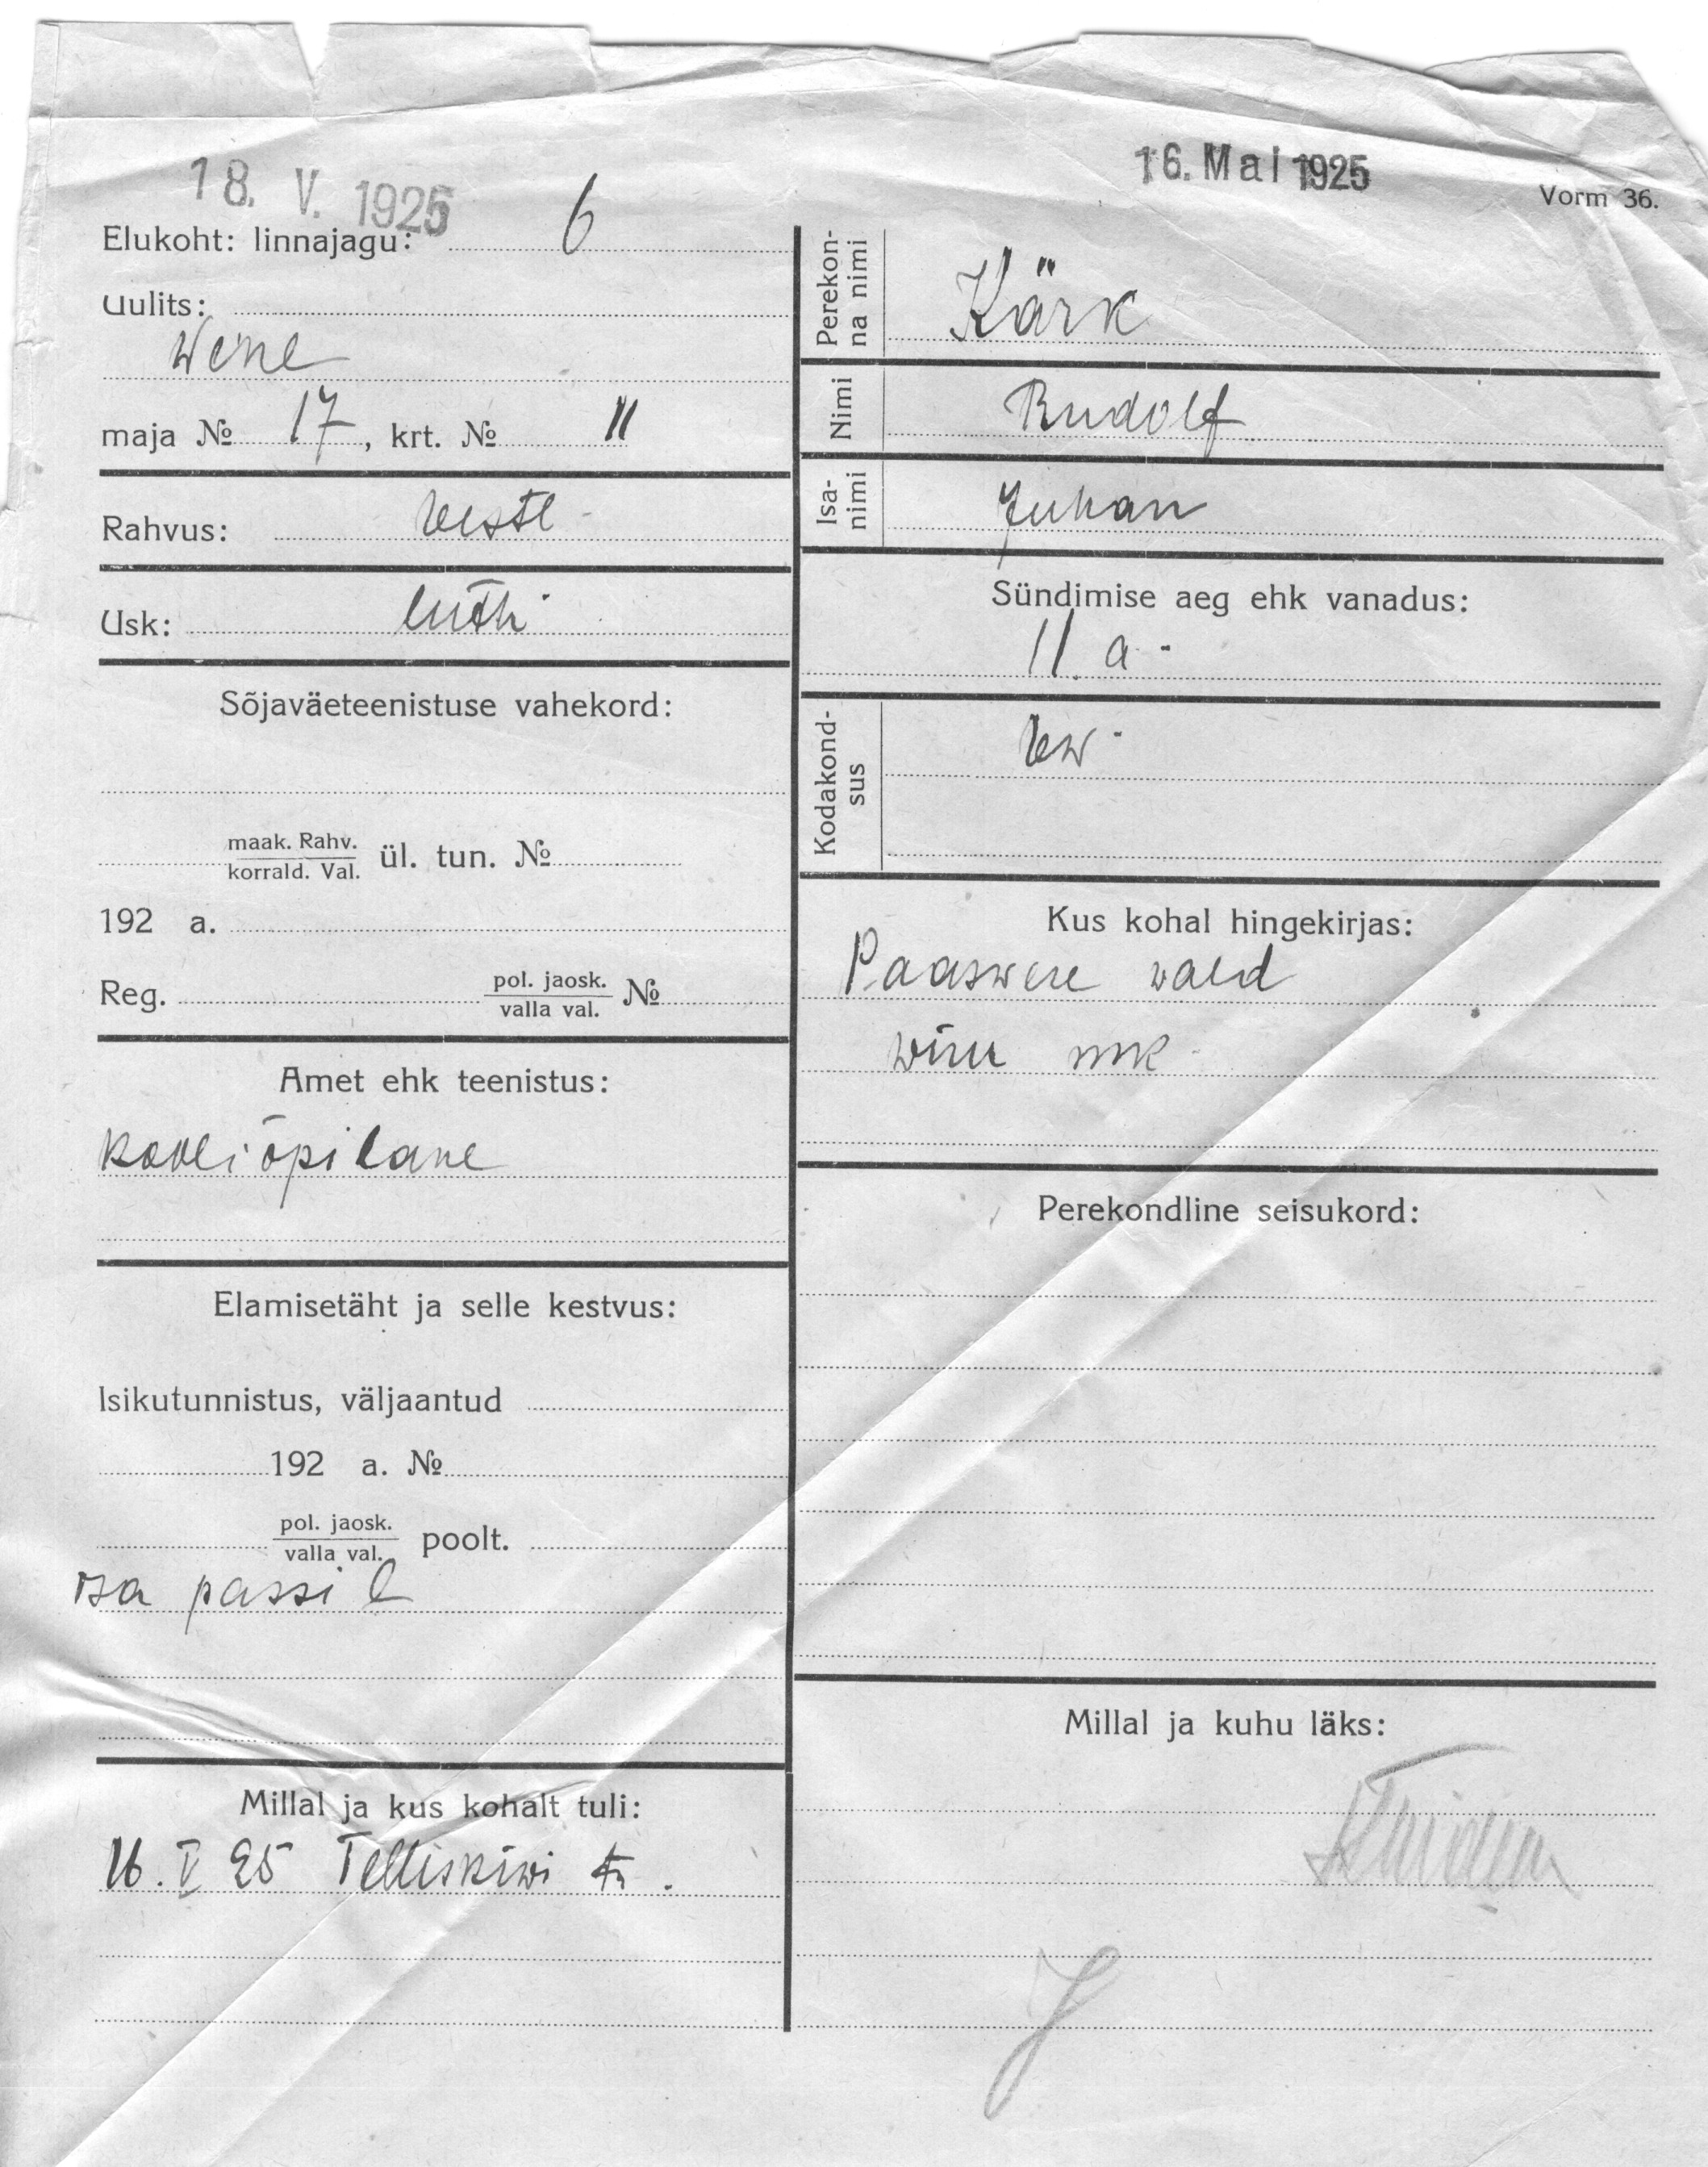 18. V. 1925
16. Mai 1925
Vorm 36.
Elukoht: linnajagu: 6
Uulits:
Wene
maja № 17, krt. № 11
Rahvus: Eesti
Usk: luth.
Sõjaväeteenistuse vahekord:
maak. Rahv.
korrald. Val. ül. tun. №
192 a.
Reg. pol. jaosk.
valla val. №
Amet ehk teenistus:
kooliõpilane
Elamisetäht ja selle kestvus:
Isikutunnistus, väljaantud
192 a. №
pol. jaosk.
valla val. poolt.
isa passil
Millal ja kus kohalt tuli:
16. V 25 Telliskiwi tn.
Perekon-
na nimi Kärk
Nimi Rudolf
Isa-
nimi Juhan
Sündimise aeg ehk vanadus:
11 a.
Kodakond-
sus Ew.
Kus kohal hingekirjas:
Paaswere vald
Wiru mk.
Perekondline seisukord:
Millal ja kuhu läks: